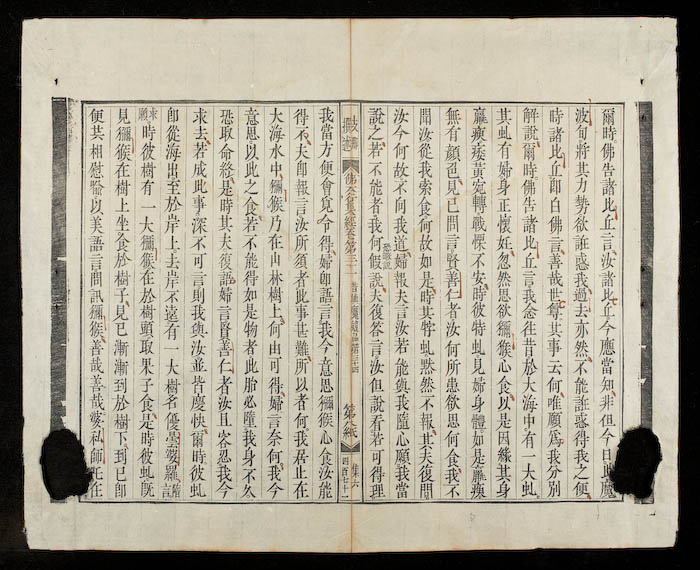 爾時佛告諸比丘言汝諸比丘今應當知非但今日此魔
波旬將其力勢欲誑惑我過去亦然不能誑惑得我之便
時諸比丘即白佛言善哉世尊其事云何唯願為我分別
解說爾時佛告諸比丘言我念往昔於大海中有一大虬
其虬有婦身正懷妊忽然思欲獼猴心食以是因緣其身
羸瘦痿黃宛轉戰慄不安時彼特虬見婦身體如是羸瘦
無有顏色見已問言賢善仁者汝何所患欲思何食我不
聞汝從我索食何故如是時其牸虬默然不報其夫復問
汝今何故不向我道婦報夫言汝若能與我隨心願我當
說之若不能者我何假說恐誤說夫復答言汝但說看若可得理
佛本行集經卷第三十一
集六
四百七十
我當方便會覓令得婦即語言我今意思獼猴心食汝能
得不夫即報言汝所須者此事甚難所以者何我居止在
大海水中獼猴乃在山林樹上何由可得婦言奈何我今
意思以此之食若不能得如是物者此胎必墮我身不久
恐取命終是時其夫復語婦言賢善仁者汝且容忍我今
求去若成此事深不可言則我與汝並皆慶快爾時彼虬
即從海出至於岸上去岸不遠有一大樹名優曇婆羅隋言
求願時彼樹有一大獼猴在於樹頭取果子食是時彼虬既
見獼猴在樹上坐食於樹子見已漸漸到於樹下到已即
便共相慰喻以美語言問訊獼猴善哉善哉婆私師吒在